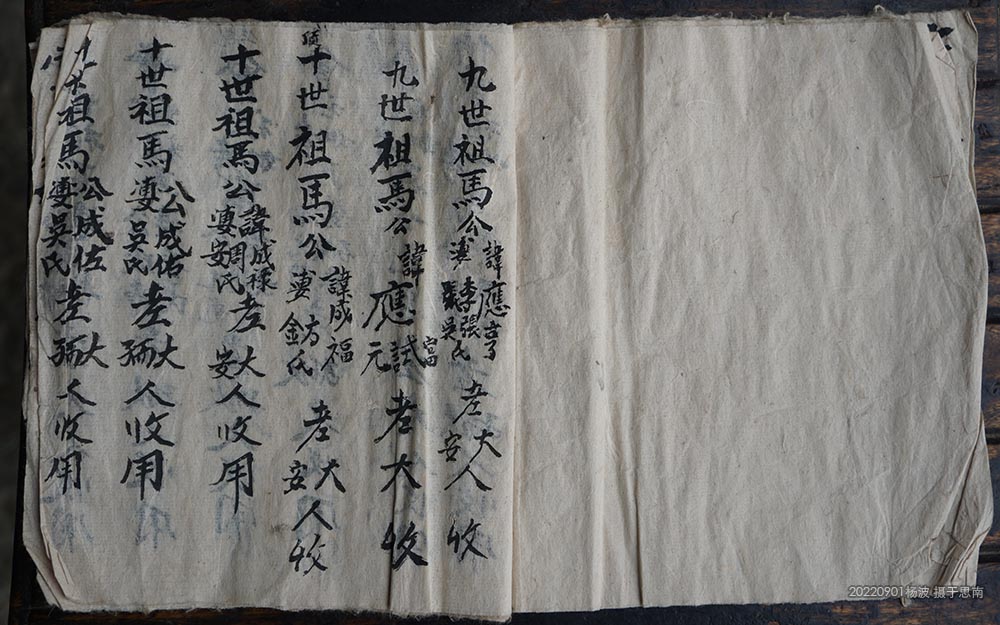 九世祖馬公諱應亨妻李張吳氏老大安人收
九世祖馬公諱應試元富老大收
十世祖馬公諱成福妻方氏老大安人收
十世祖馬公諱成禄妻周安氏老大安人收用
十世祖馬公成佑妻吳氏老大孺人收用
十世祖馬公成佐妻吳氏老大孺人收用
20220901杨波 摄于思南